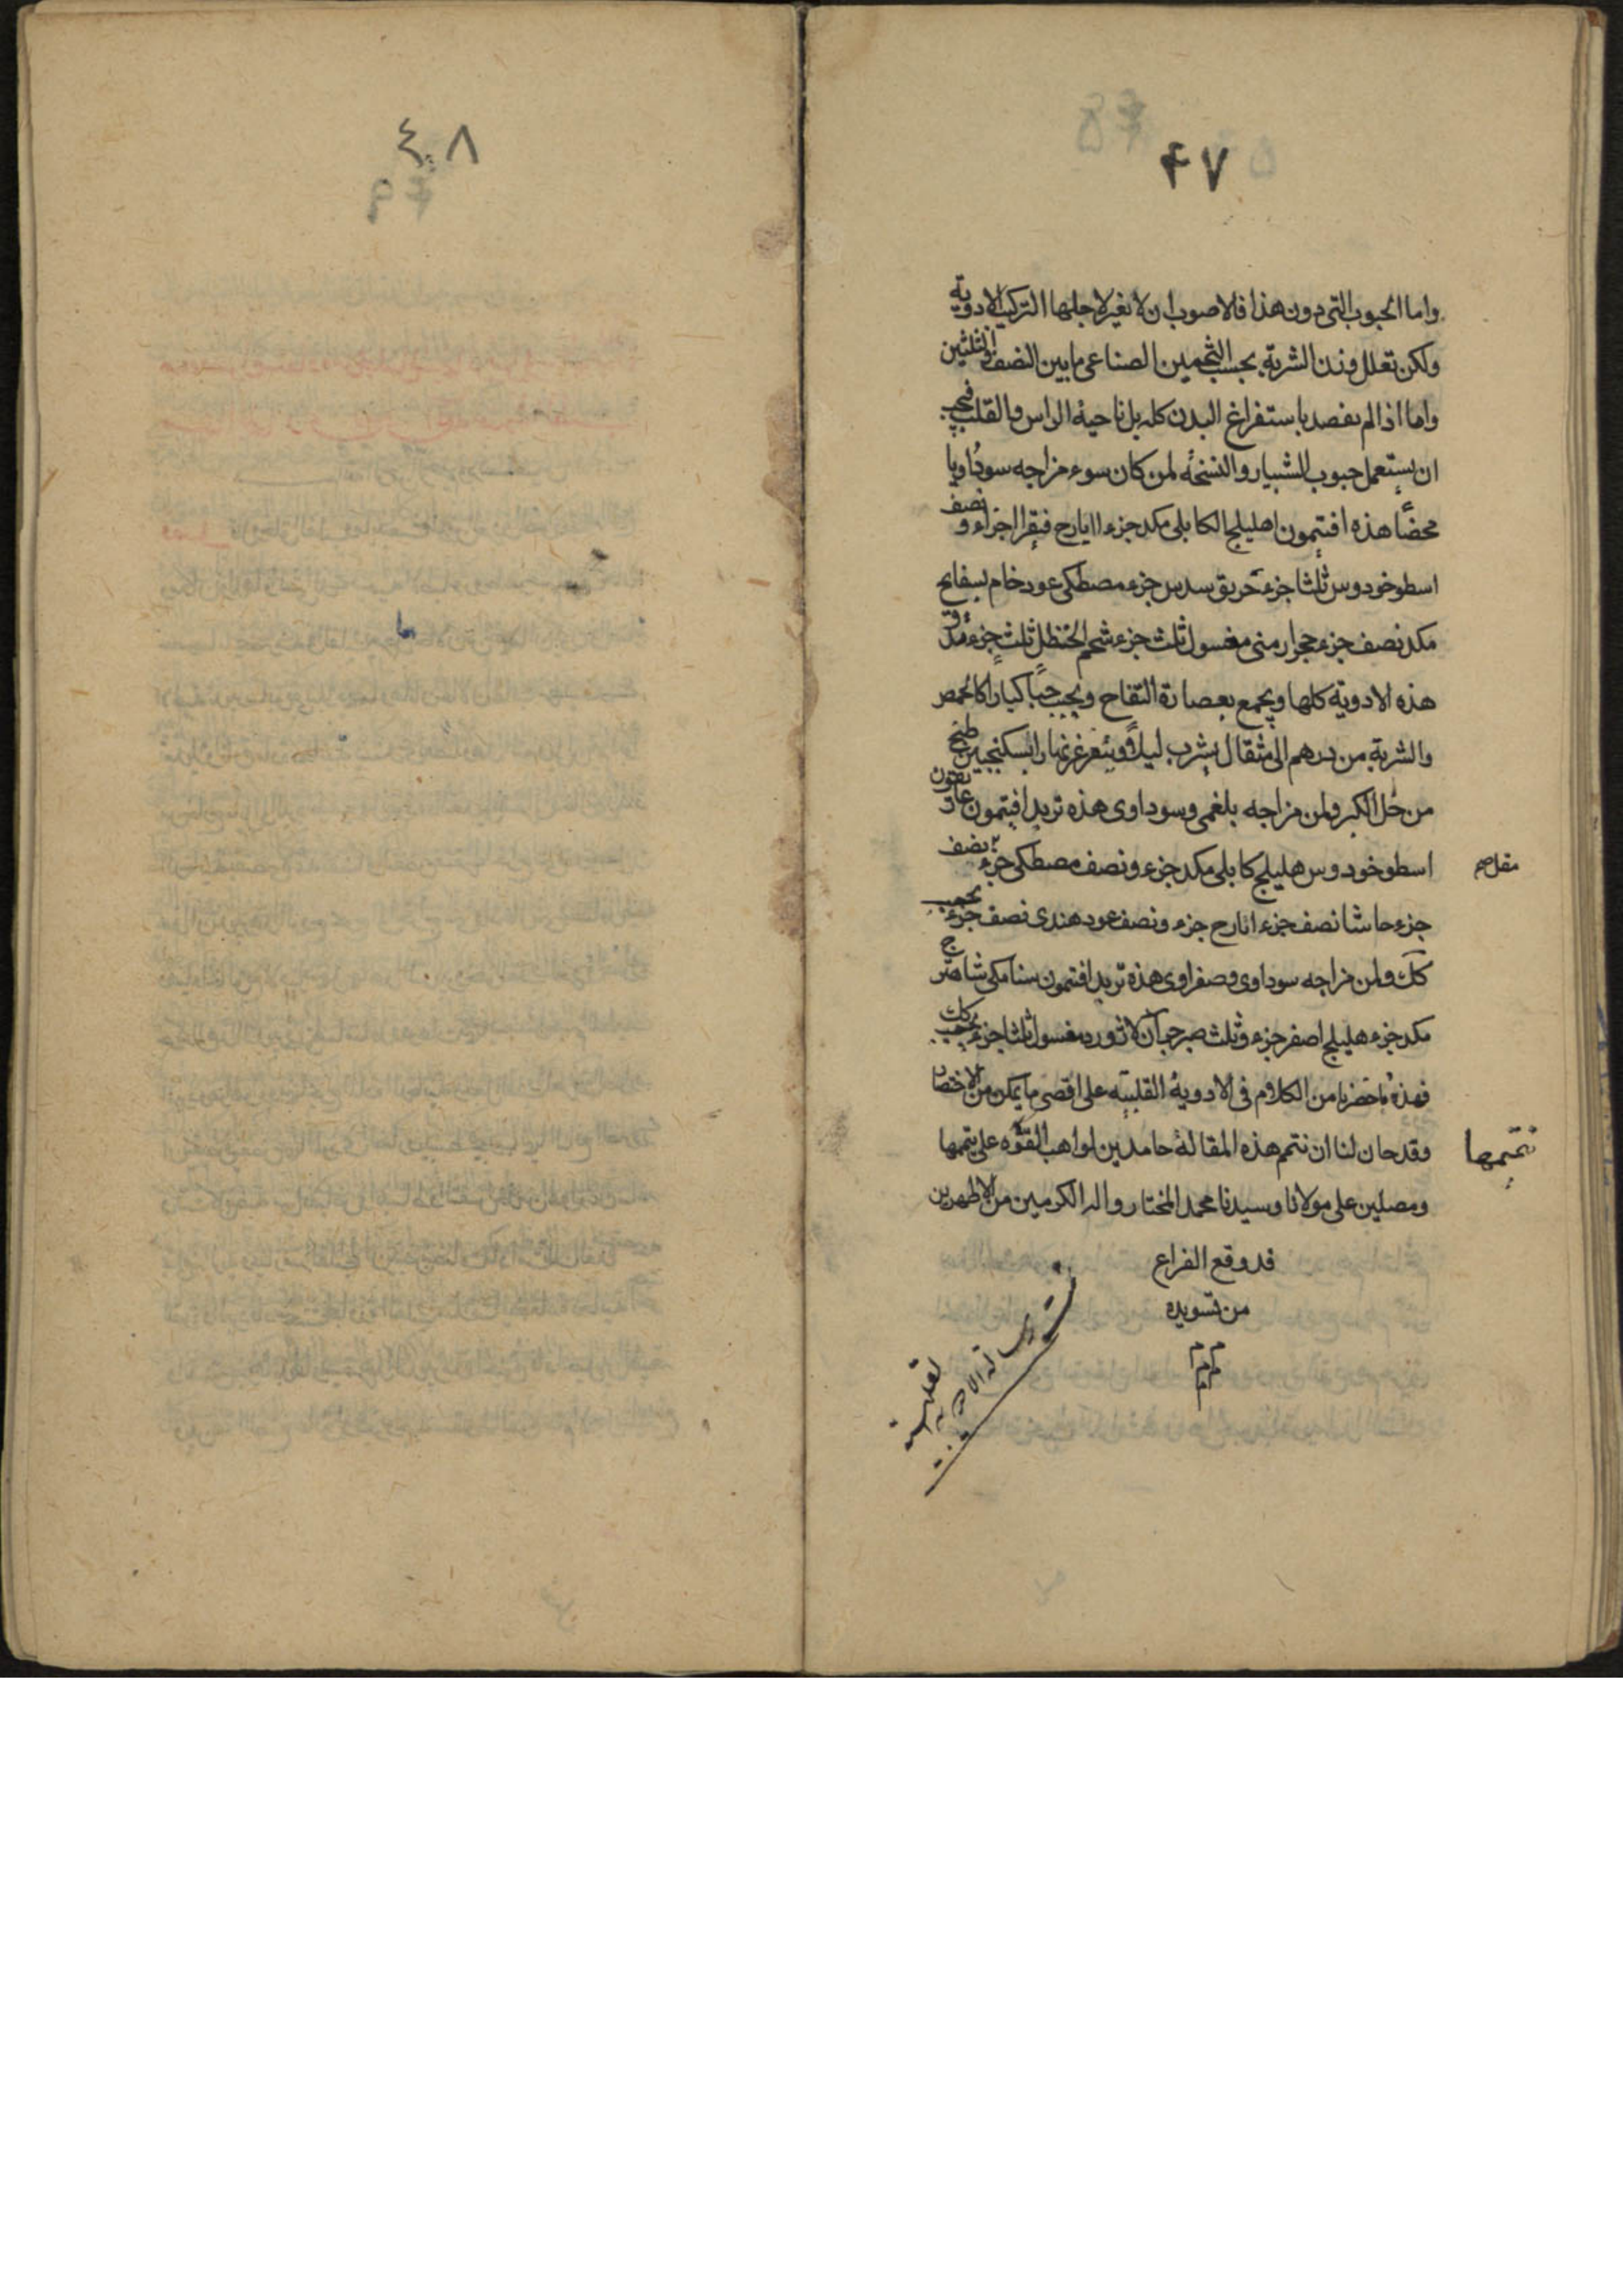 ٤٧
واما الحبوب التى دون هذا فالاصوب ان لا نغير لاجلها التركيب الادوية
ولكن تعلل وزن الشربة بحسب التخمين الصناعى مابين النصف والثلثين
واما اذا لم نقصد باستفراغ البدن كله بل ناحية الراس والقلب فيجب
ان يستعمل حبوب الشبيار والنسخة لمن كان سوء مزاجه سوداويا
محضا هذه افتيمون اهليلج الكابلى مكد جزء ايارج فيقرا جزاء ونصف
اسطوخودوس ثلثا جزء خربق سدس جزء مصطكى عود خام بسفايج
مكد نصف جزء حجر ارمنى مغسول ثلث جزء شحم الحنظل ثلث جزء مدق
هذه الادوية كلها ويجمع بعصارة التفاح ويحبب حبا كبارا كالحمص
والشربة من درهم الى مثقال يشرب ليلا ويتغرغر نهارا بسكنجبين طبخ
من خل الكبر ولمن مزاجه بلغمى وسوداوى هذه تربد افتيمون غاريقون
اسطوخودوس هليلج كابلى مكد جزء ونصف مصطكى جزء نصف
جزء حاشا نصف جزء ايارج جزء ونصف عود هندى نصف جزء يحبب
كك ولمن مزاجه سوداوى وصفراوى هذه تربد افتيمون سنا مكى شاهترج
مكد جزء هليلج اصفر جزء وثلث صبر جزآن لاثورد مغسول ثلثا جزء يحبب كك
فهذه ما حضرنا من الكلام فى الادوية القلبية على اقصى ما يمكن من الاختصار
وقد حان لنا ان نتمم هذه المقالة حامدين لواهب القوة على تتمها
تتميمها
ومصلين على مولانا وسيدنا محمد المختار واله الاكرمين من الاطهرين
قد وقع الفراغ
من تسويده
م م م
٤٨